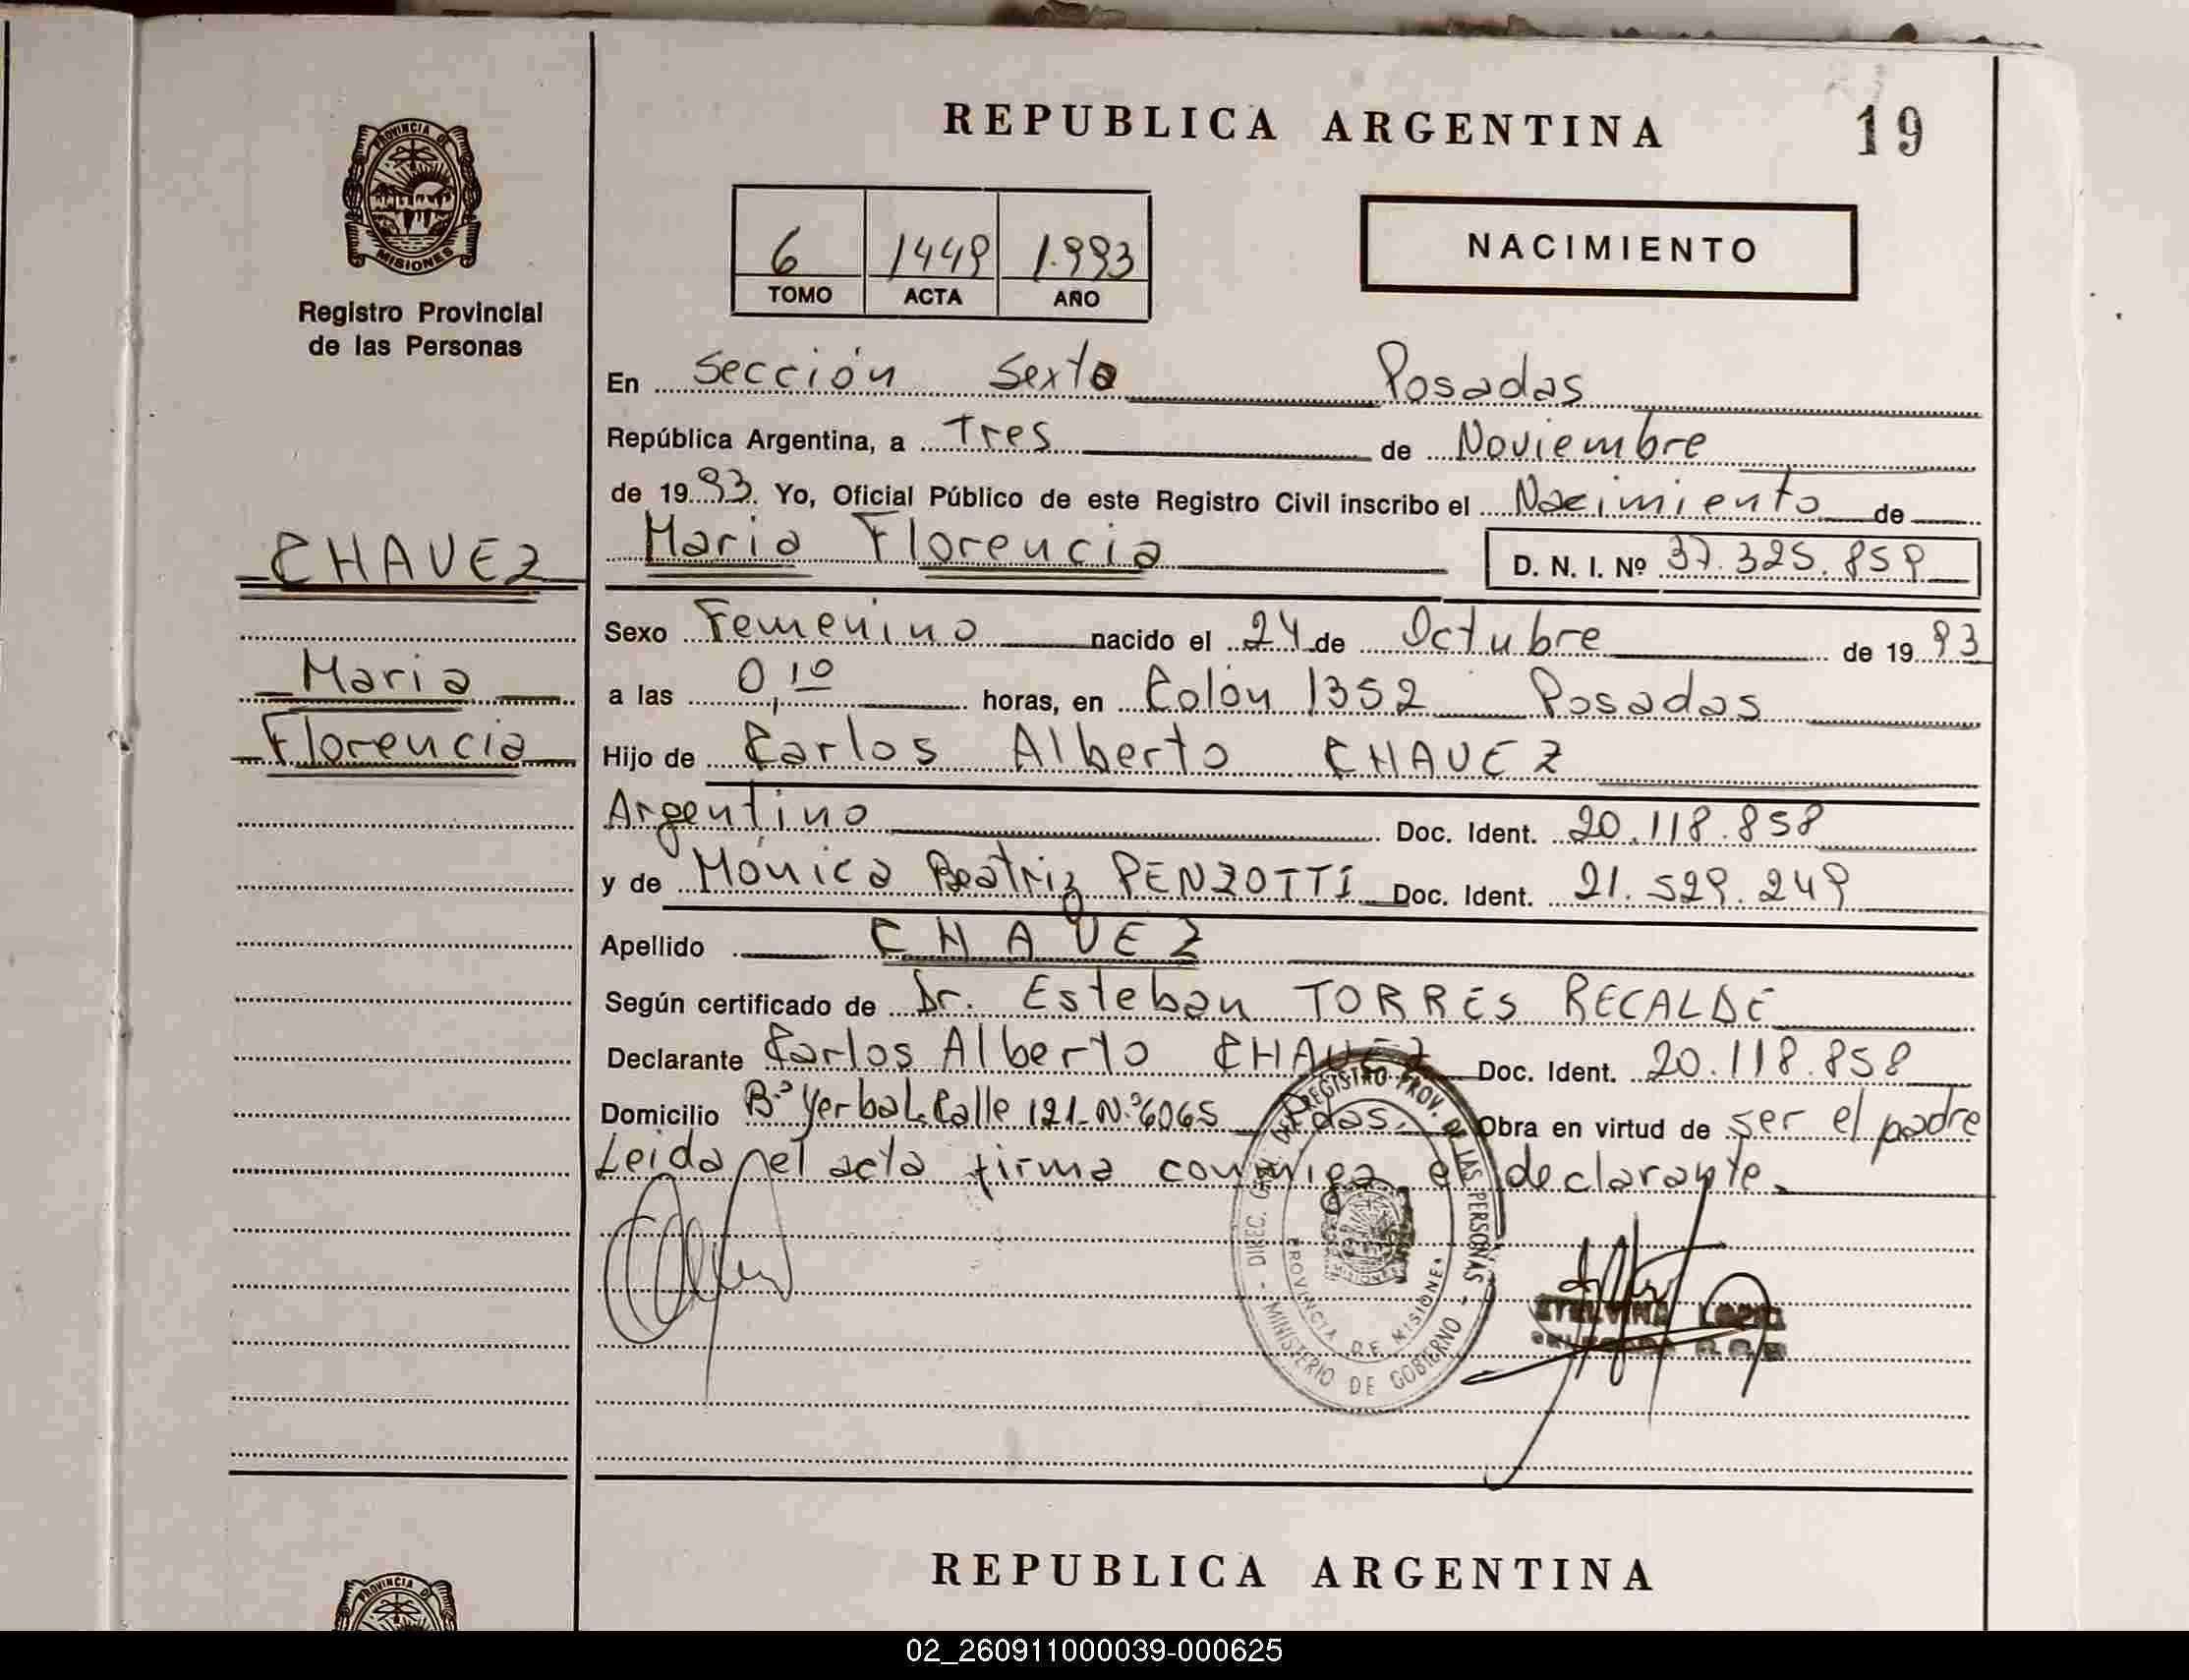 REPUBLICA ARGENTINA
19
PROVINCIA DE
MISIONES
Registro Provincial
de las Personas
6 1449 1.993
TOMO ACTA AÑO
NACIMIENTO
En Sección Sexta Posadas
República Argentina, a Tres de Noviembre
de 19 93. Yo, Oficial Público de este Registro Civil inscribo el Nacimiento de
CHAVEZ
Maria Florencia D. N. I. Nº 37.325.859
Sexo Femenino nacido el 24 de Octubre de 19 93
Maria
a las 0,10 horas, en Colón 1352 Posadas
Florencia
Hijo de Carlos Alberto CHAVEZ
Argentino Doc. Ident. 20.118.858
y de Mónica Beatriz PENZOTTI Doc. Ident. 21.529.249
Apellido CHAVEZ
Según certificado de Dr. Esteban TORRES RECALDE
Declarante Carlos Alberto CHAVEZ Doc. Ident. 20.118.858
Domicilio Bº Yerbal Calle 121-Nº6065 Pdas. Obra en virtud de ser el padre
Leida el acta firma conmigo el declarante.
DIREC. GRAL. DEL REGISTRO PROV. DE LAS PERSONAS
PROVINCIA DE MISIONES
MINISTERIO DE GOBIERNO
REPUBLICA ARGENTINA
PROVINCIA D
02_260911000039-000625